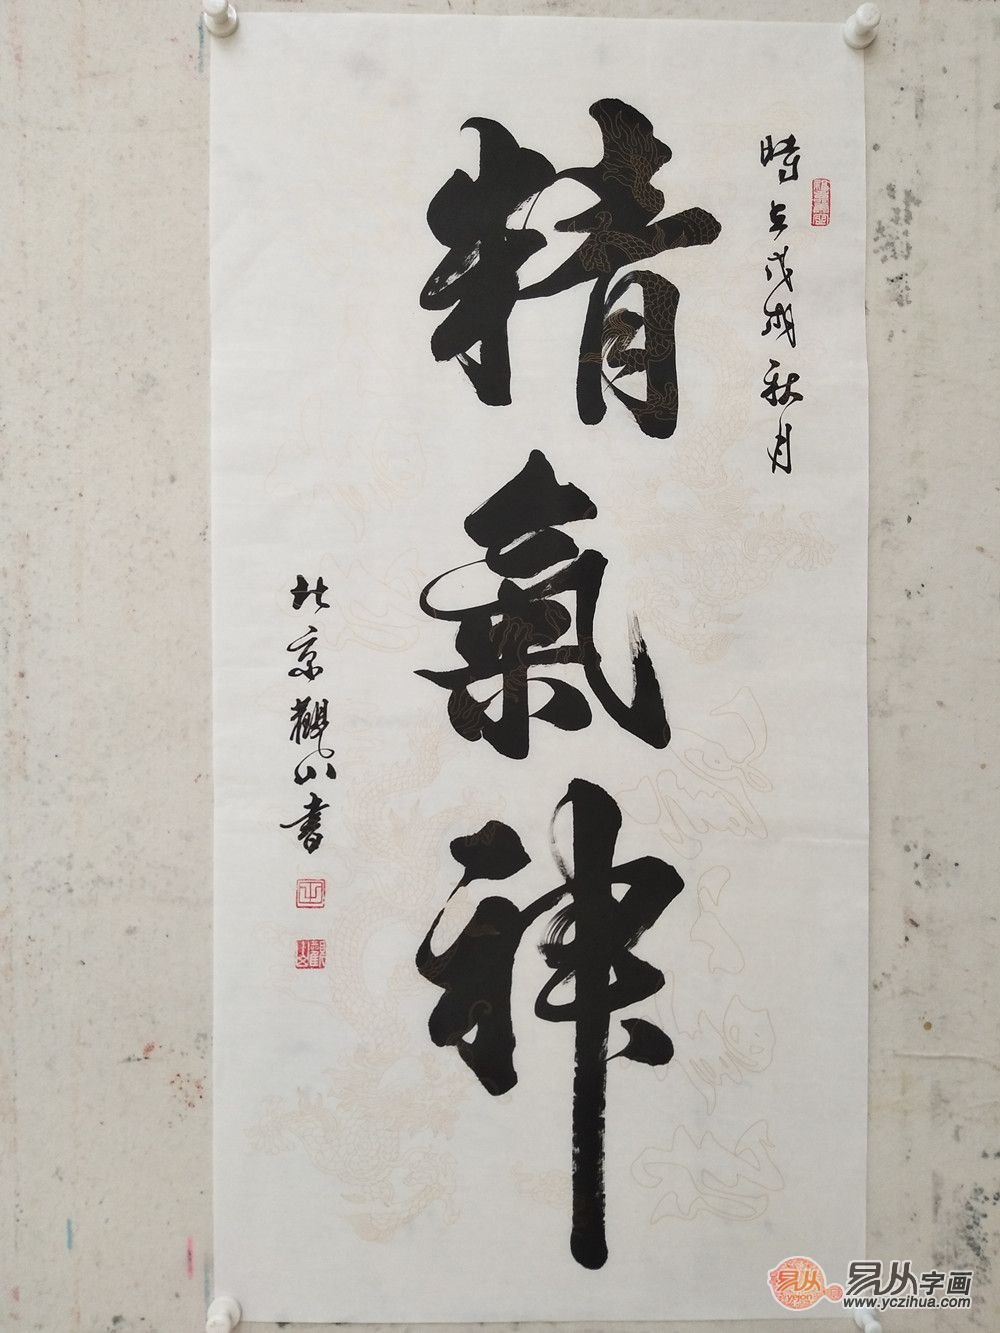 時在戊戌秋月
精氣神
北京觀山書
易从
yicjon
易从字画
www.yczihua.com